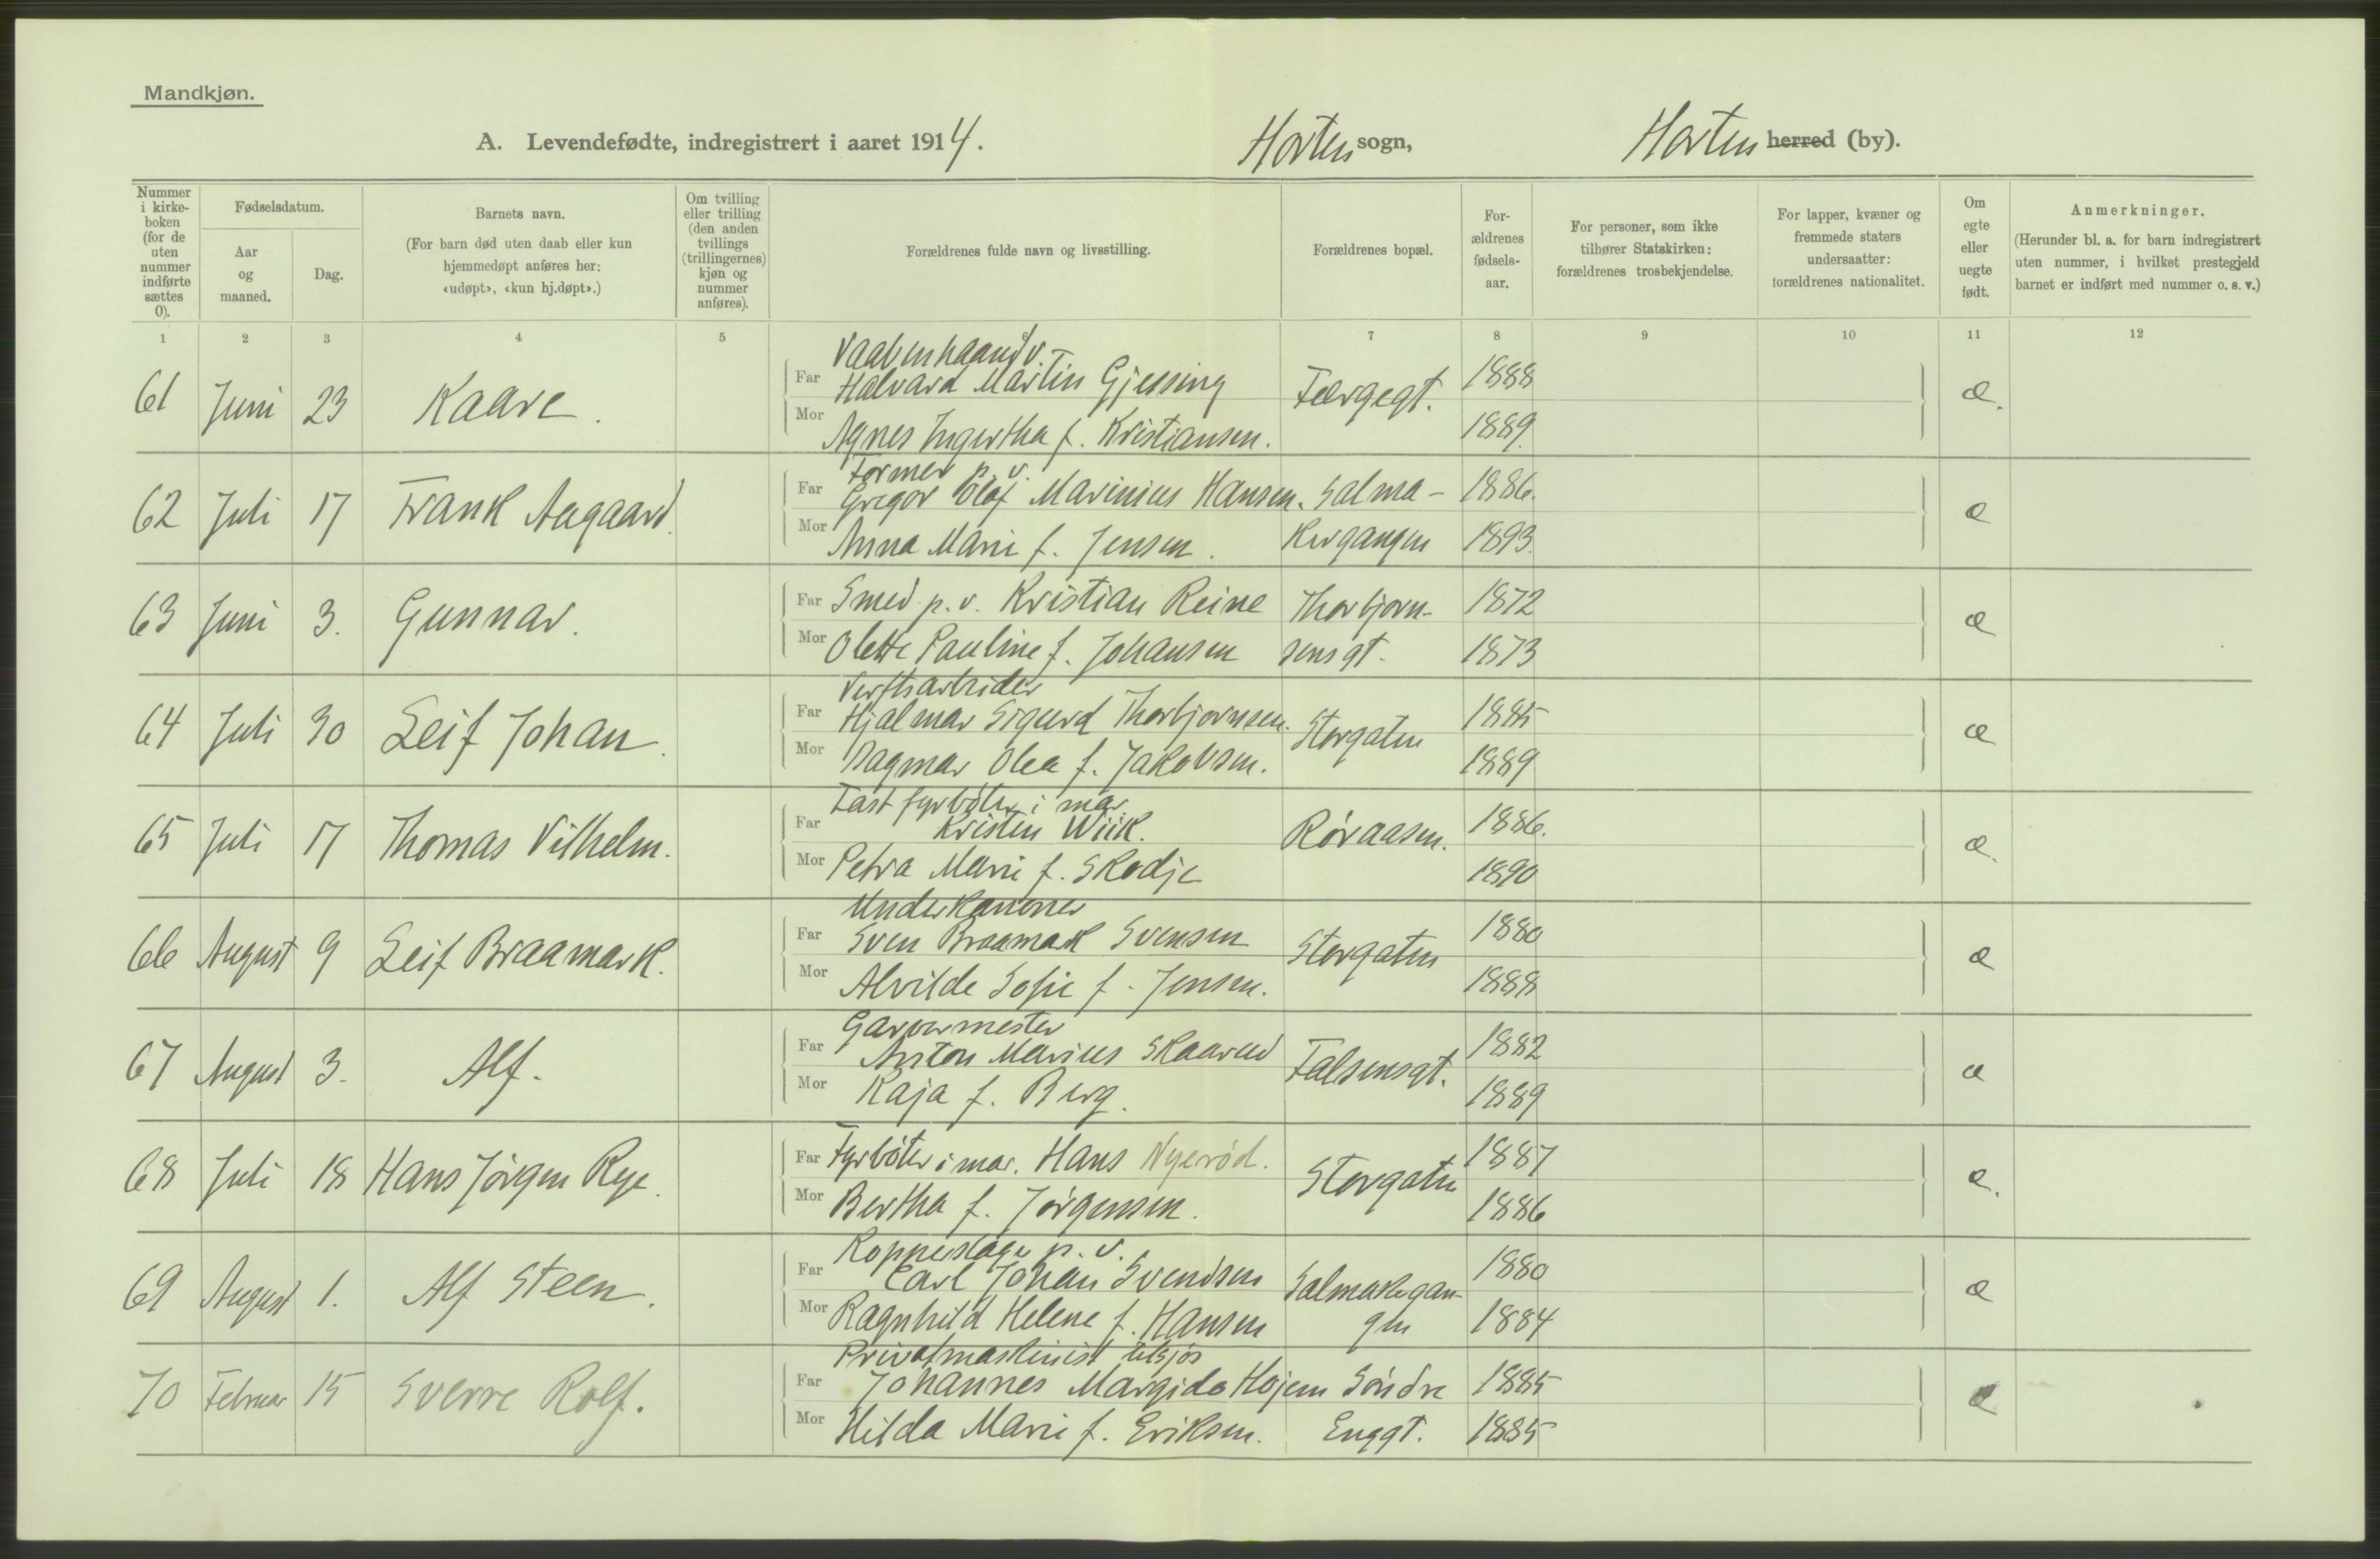 Mandkjøn.
A. Levendefødte, indregistrert i aaret 1914. Horten sogn, Horten herred (by).
Nummer i kirke-boken (for de uten nummer indførte sættes 0).
Fødselsdatum.
Aar og maaned.
Dag.
Barnets navn.
(For barn død uten daab eller kun hjemmedøpt anføres her: «udøpt», «kun hj.døpt».)
Om tvilling eller trilling (den anden tvillings (trillingernes) kjøn og nummer anføres).
Forældrenes fulde navn og livsstilling.
Forældrenes bopæl.
For-ældrenes fødsels-aar.
For personer, som ikke tilhører Statskirken: forældrenes trosbekjendelse.
For lapper, kvæner og fremmede staters undersaatter: forældrenes nationalitet.
Om egte eller uegte født.
Anmerkninger.
(Herunder bl. a. for barn indregistrert uten nummer, i hvilket prestegjeld barnet er indført med nummer o. s. v.)
1 2 3 4 5 6 7 8 9 10 11 12
Vaabenhaandv.
61 Juni 23 Kaare. Far Halvard Martin Gjessing Færgegt. 1888 æ.
Mor Agnes Ingertha f. Kristiansen. 1889.
Former p. v.
62 Juli 17 Frank Aagaard. Far Gregor Olaf Marinius Hansen. Salma- 1886. æ
Mor Anna Marie f. Jensen. kergangen 1893.
63 Juni 3. Gunnar. Far Smed p. v. Kristian Reine Thorbjørn- 1872 æ
Mor Olette Pauline f. Johansen sensgt. 1873
Verftsarbeider
64 Juli 30 Leif Johan. Far Hjalmar Sigurd Thorbjørnsen. Storgaten 1885 æ
Mor Dagmar Olea f. Jakobsen. 1889
Fast fyrbøter i mar.
65 Juli 17 Thomas Vilhelm. Far Kristen Wiik. Røraasen. 1886. æ.
Mor Petra Marie f. Skodje 1890
Underkanoner
66 August 9 Leif Braamark. Far Sven Braamark Svensen Storgaten 1880 æ
Mor Alvilde Sofie f. Jensen. 1888
Garvermester
67 August 3. Alf. Far Anton Marius Skaarud Falsensgt. 1882 æ
Mor Kaja f. Berg. 1889
68 Juli 18 Hans Jørgen Rye. Far Fyrbøter i mar. Hans Nyerød. Storgaten 1887 æ.
Mor Bertha f. Jørgensen. 1886
Kopperslager p. v.
69 August 1. Alf Steen. Far Carl Johan Svendsen Salmakegan- 1880 æ
Mor Ragnhild Helene f. Hansen gen 1884
Privatmaskinist tilsjøs
70 Februar 15 Sverre Rolf. Far Johannes Margido Højem Søndre 1885 æ
Mor Hilda Marie f. Eriksen. Enggt. 1885